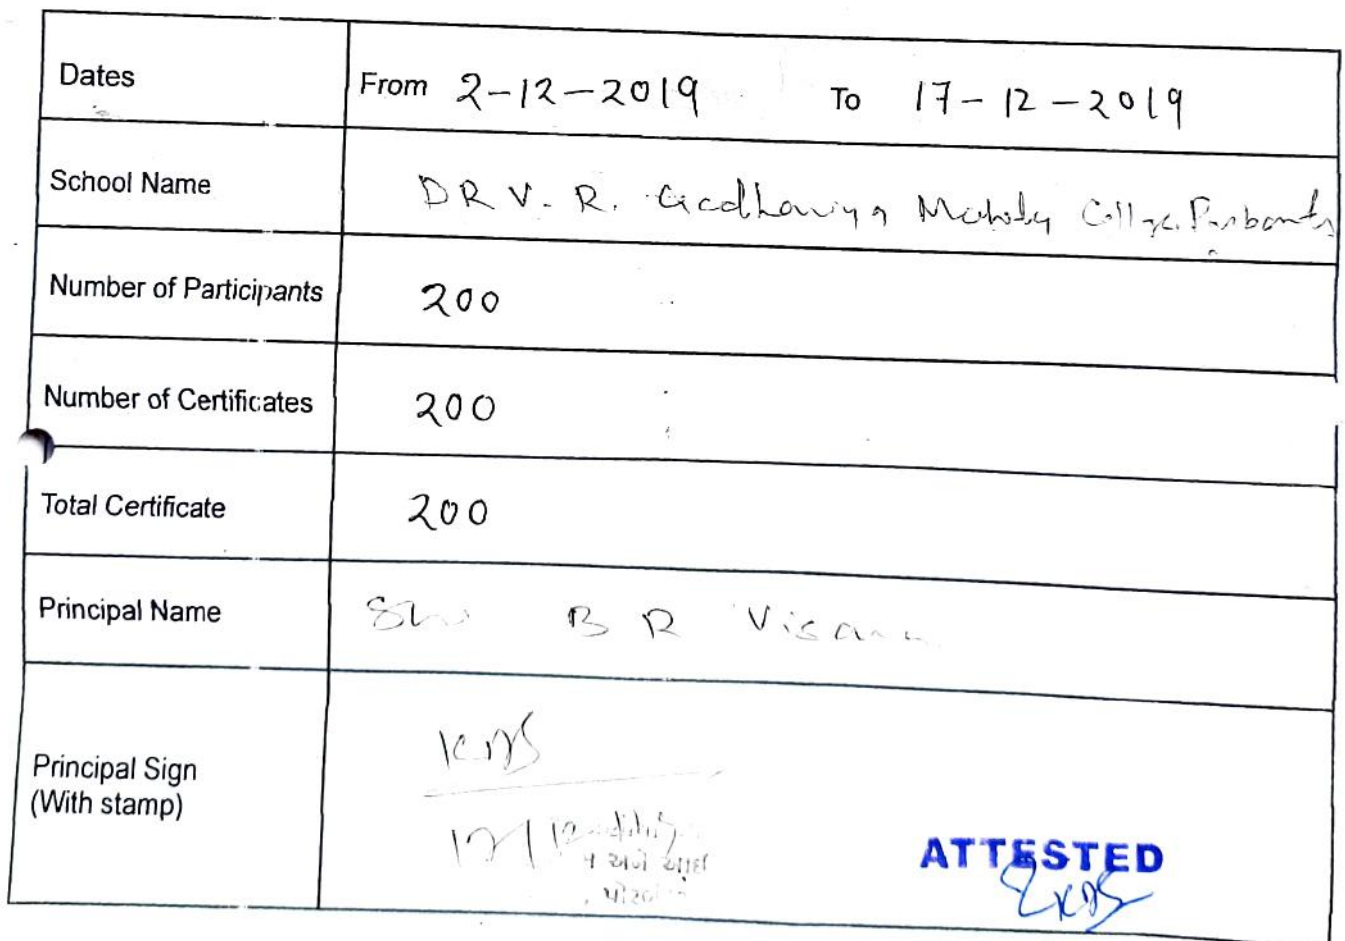 Dates From 2-12-2019 To 17-12-2019
School Name DR V. R. Collge
Number of Participants 200
Number of Certificates 200
Total Certificate 200
Principal Name B R
Principal Sign
(With stamp)
અને
ATTESTED